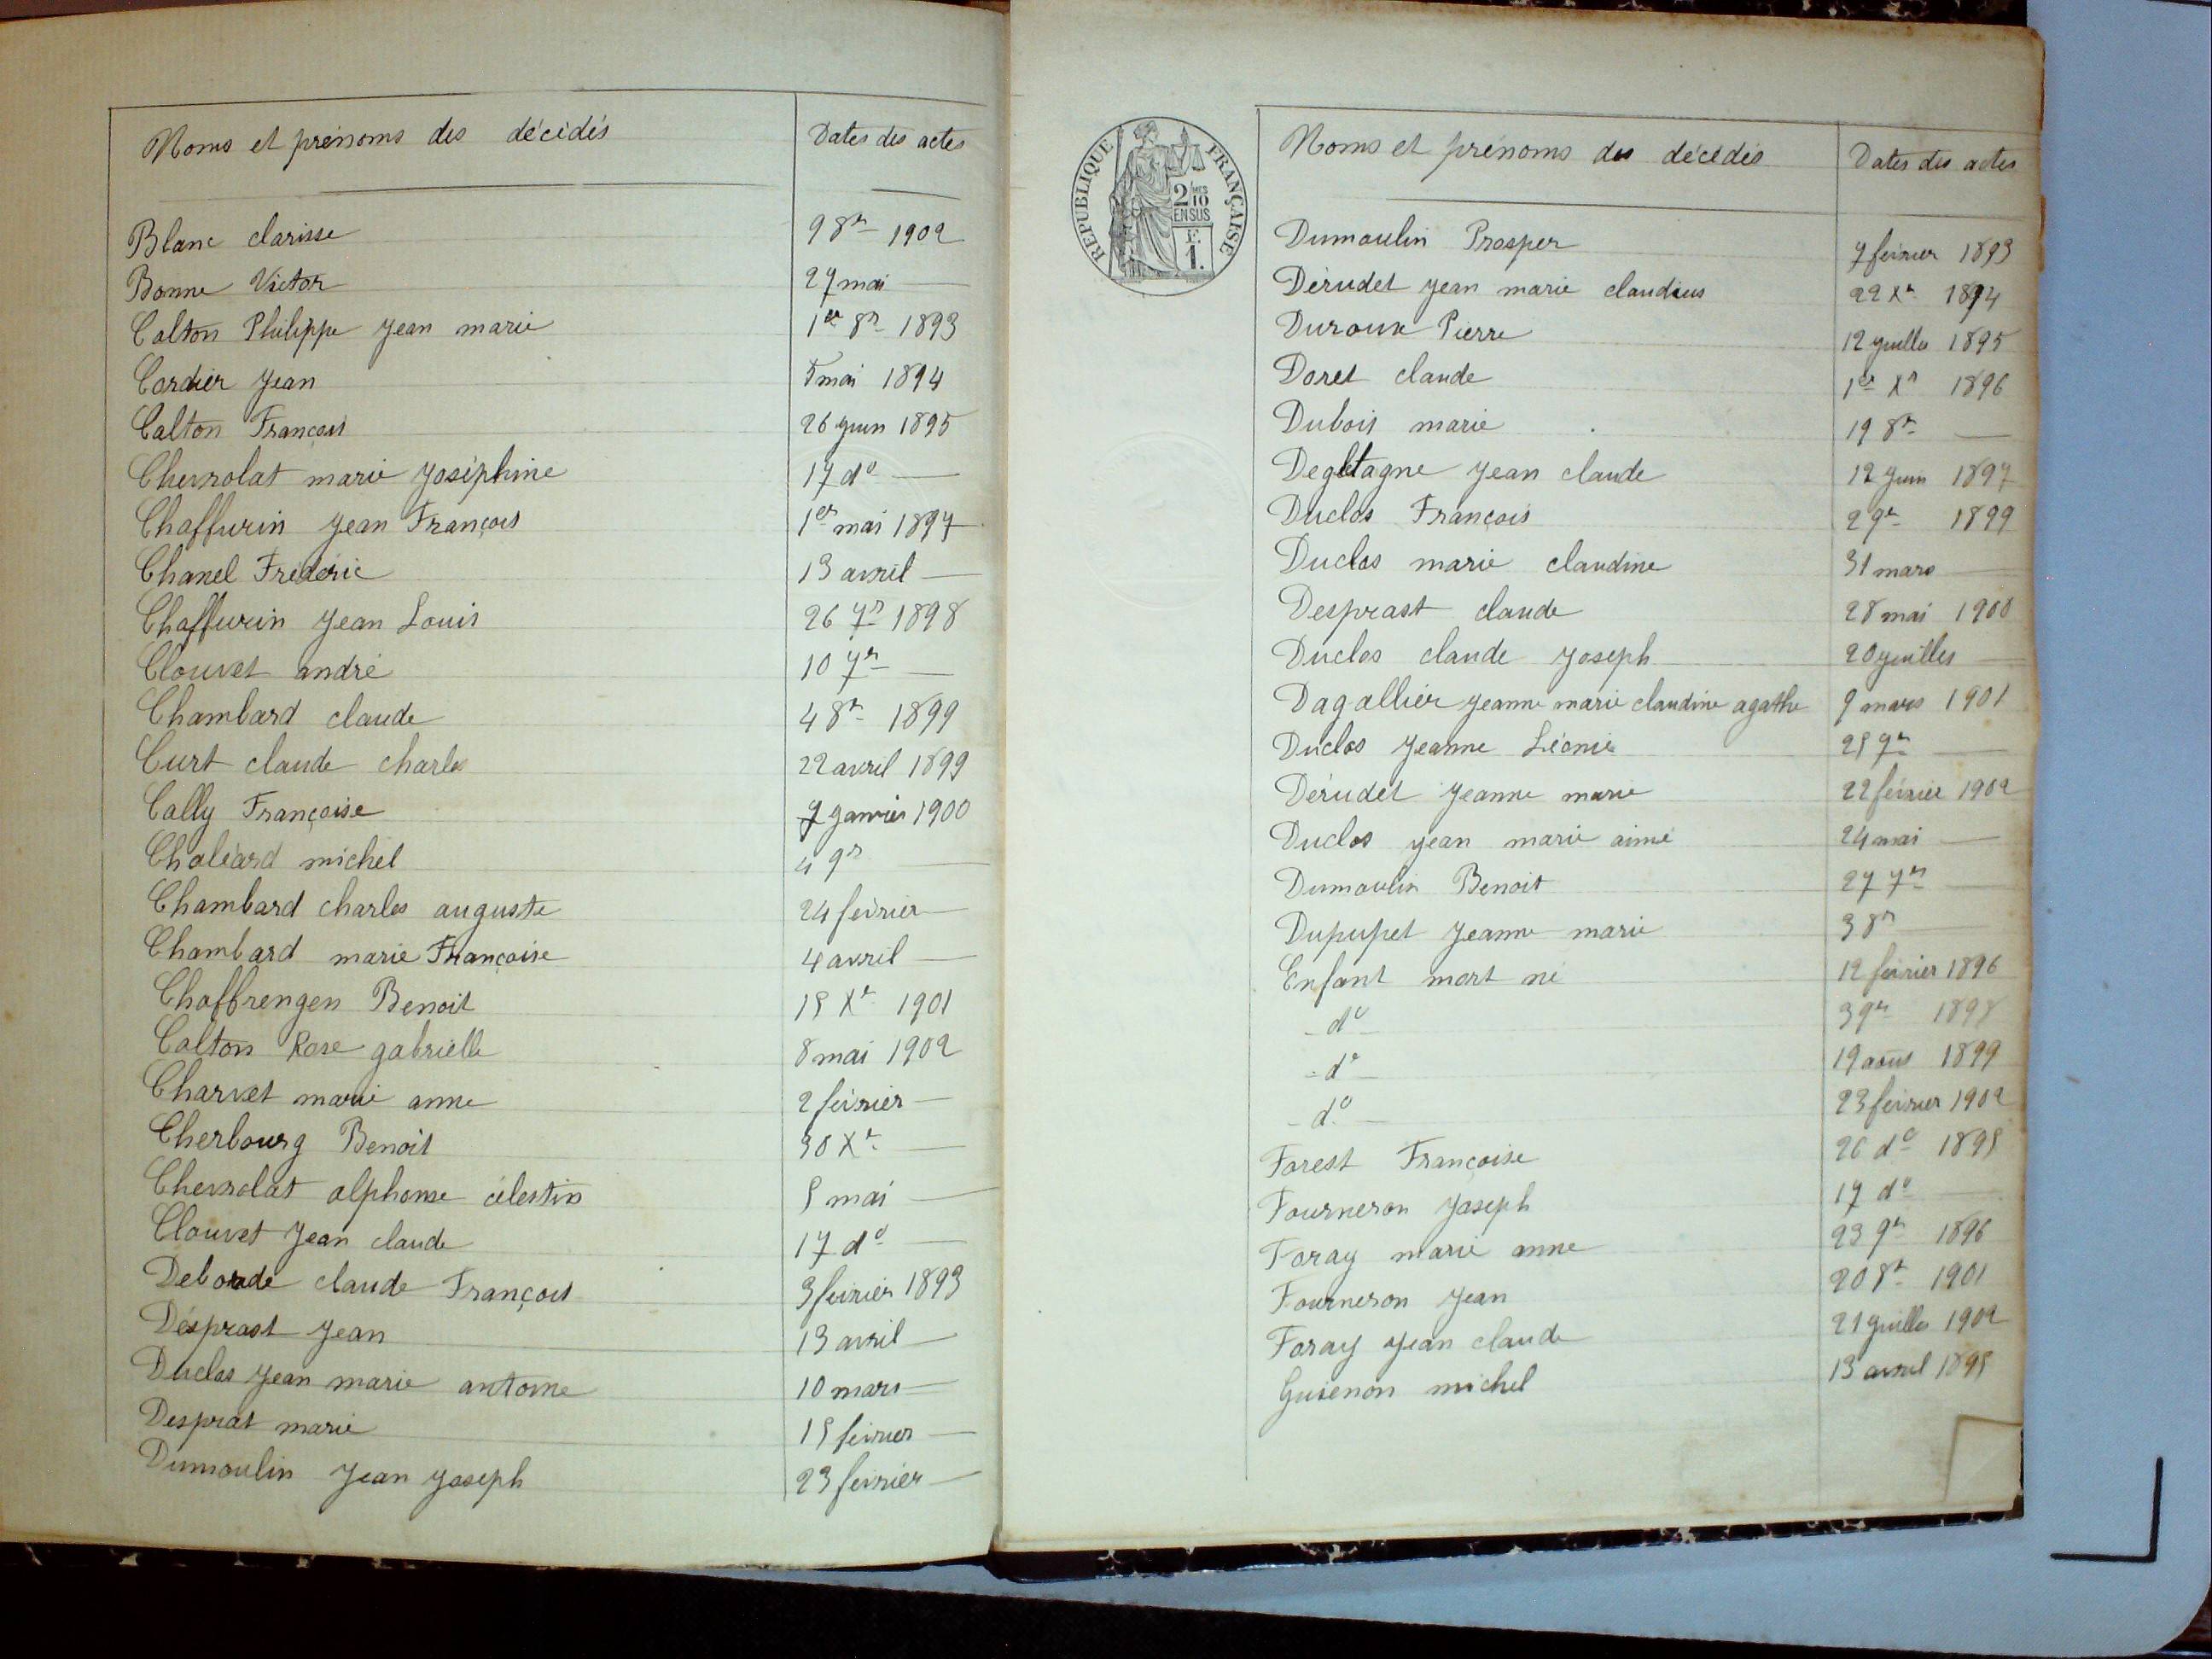 Noms et prénoms des décédés Dates des actes
Blanc clarisse 9 8re 1902
Bonne Victor 27 mai —
Calton Philippe Jean marie 1er 8re 1893
Cordier Jean 5 mai 1894
Calton François 26 juin 1895
Chevrolat marie Joséphine 17 do —
Chaffurin Jean François 1er mai 1897
Chanel Frédéric 13 avril —
Chaffurin Jean Louis 26 7re 1898
Clouvet andré 10 7re —
Chambard claude 4 8re 1899
Curt claude charles 22 avril 1899
Cally Françoise 7 janvier 1900
Choléard michel 4 9re —
Chambard charles auguste 24 février —
Chambard marie Françoise 4 avril —
Choffrengen Benoit 15 Xre 1901
Calton Rose gabrielle 8 mai 1902
Charvet marie anne 2 février —
Cherbourg Benoit 30 Xre —
Chevrolat alphonse célestin 5 mai —
Clouvet Jean claude 17 do —
Deborde claude François 3 février 1893
Desprast Jean 13 avril —
Duclos Jean marie antoine 10 mars —
Desprat marie 15 février —
Dumoulin Jean Joseph 23 février —
RÉPUBLIQUE FRANÇAISE
2/10 MES
EN SUS
F.
1.
Noms et prénoms des décédés Dates des actes
Dumoulin Prosper 7 février 1893
Dérudet Jean marie claudius 22 Xre 1894
Duroux Pierre 12 juillet 1895
Doret claude 1er Xre 1896
Dubois marie 19 8re —
Degletagne Jean claude 12 juin 1897
Duclos François 2 9re 1899
Duclos marie claudine 31 mars —
Desprast claude 28 mai 1900
Duclos claude Joseph 20 juillet —
Dagallier Jeanne marie claudine agathe 9 mars 1901
Duclos Jeanne Léonie 25 9re —
Dérudet Jeanne marie 22 février 1902
Duclos Jean marie aimé 24 mai —
Dumoulin Benoit 27 7re —
Dupupet Jeanne marie 3 8re —
Enfant mort né 12 février 1896
- do - 3 9re 1898
- do - 19 août 1899
- do - 23 février 1902
Forest Françoise 26 do 1895
Fourneron Joseph 17 do —
Foray marie anne 23 9re 1896
Fourneron Jean 20 8re 1901
Foray Jean claude 21 juillet 1902
Guienon michel 13 avril 1895